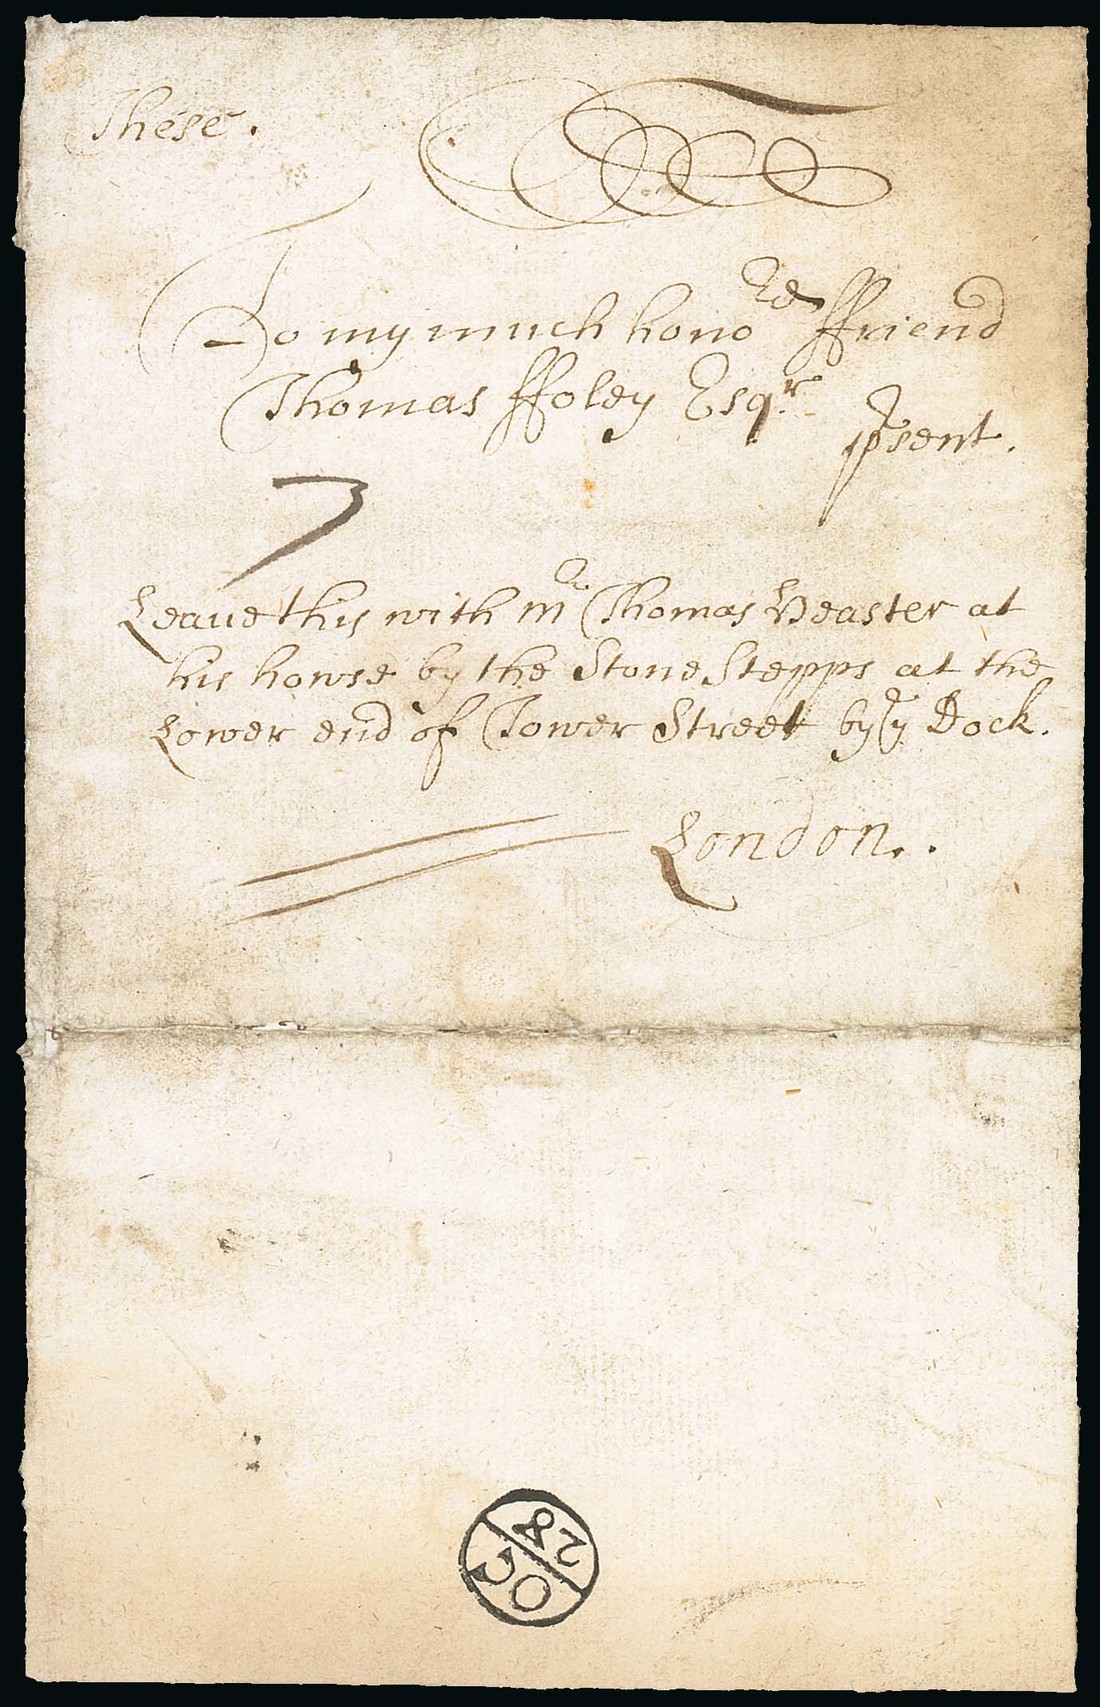 These.
To my much hono.rd ffriend
Thomas ffoley Esqr.
psent.
3
Leave this with Mr Thomas Veaster at
his howse by the Stone Stepps at the
Lower end of Tower Street by ye Dock.
London.
28
OC